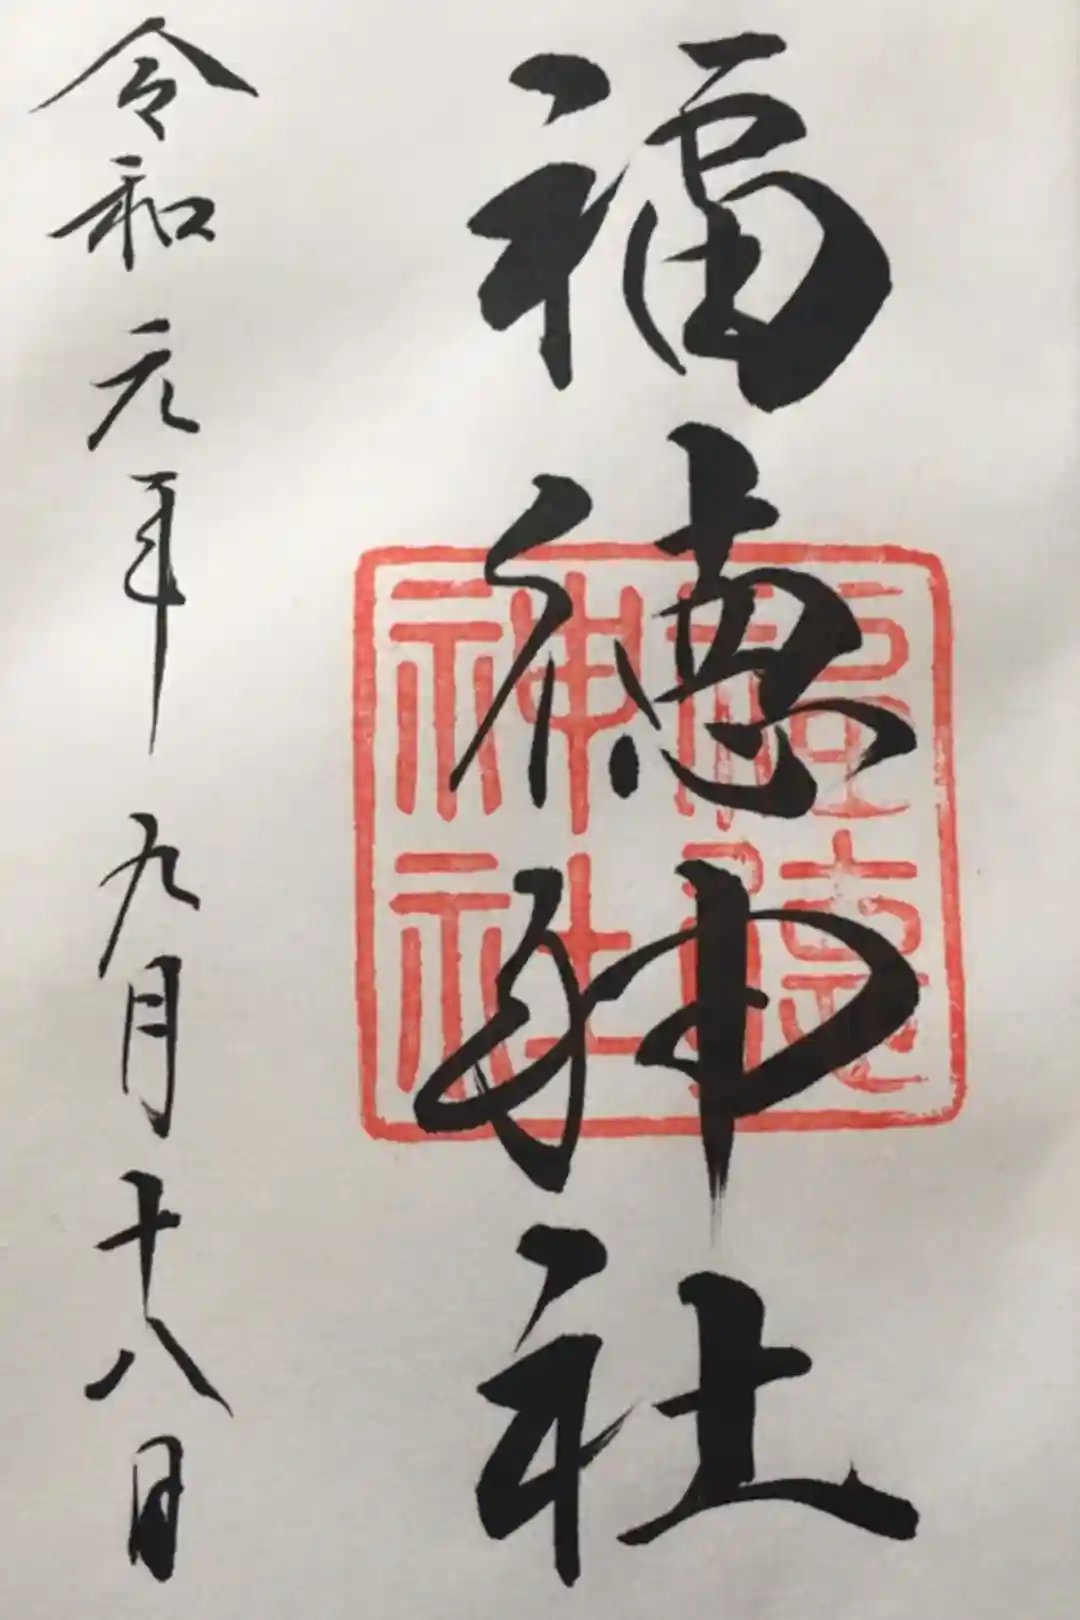 福徳神社
福徳
神社
令和元年九月十八日